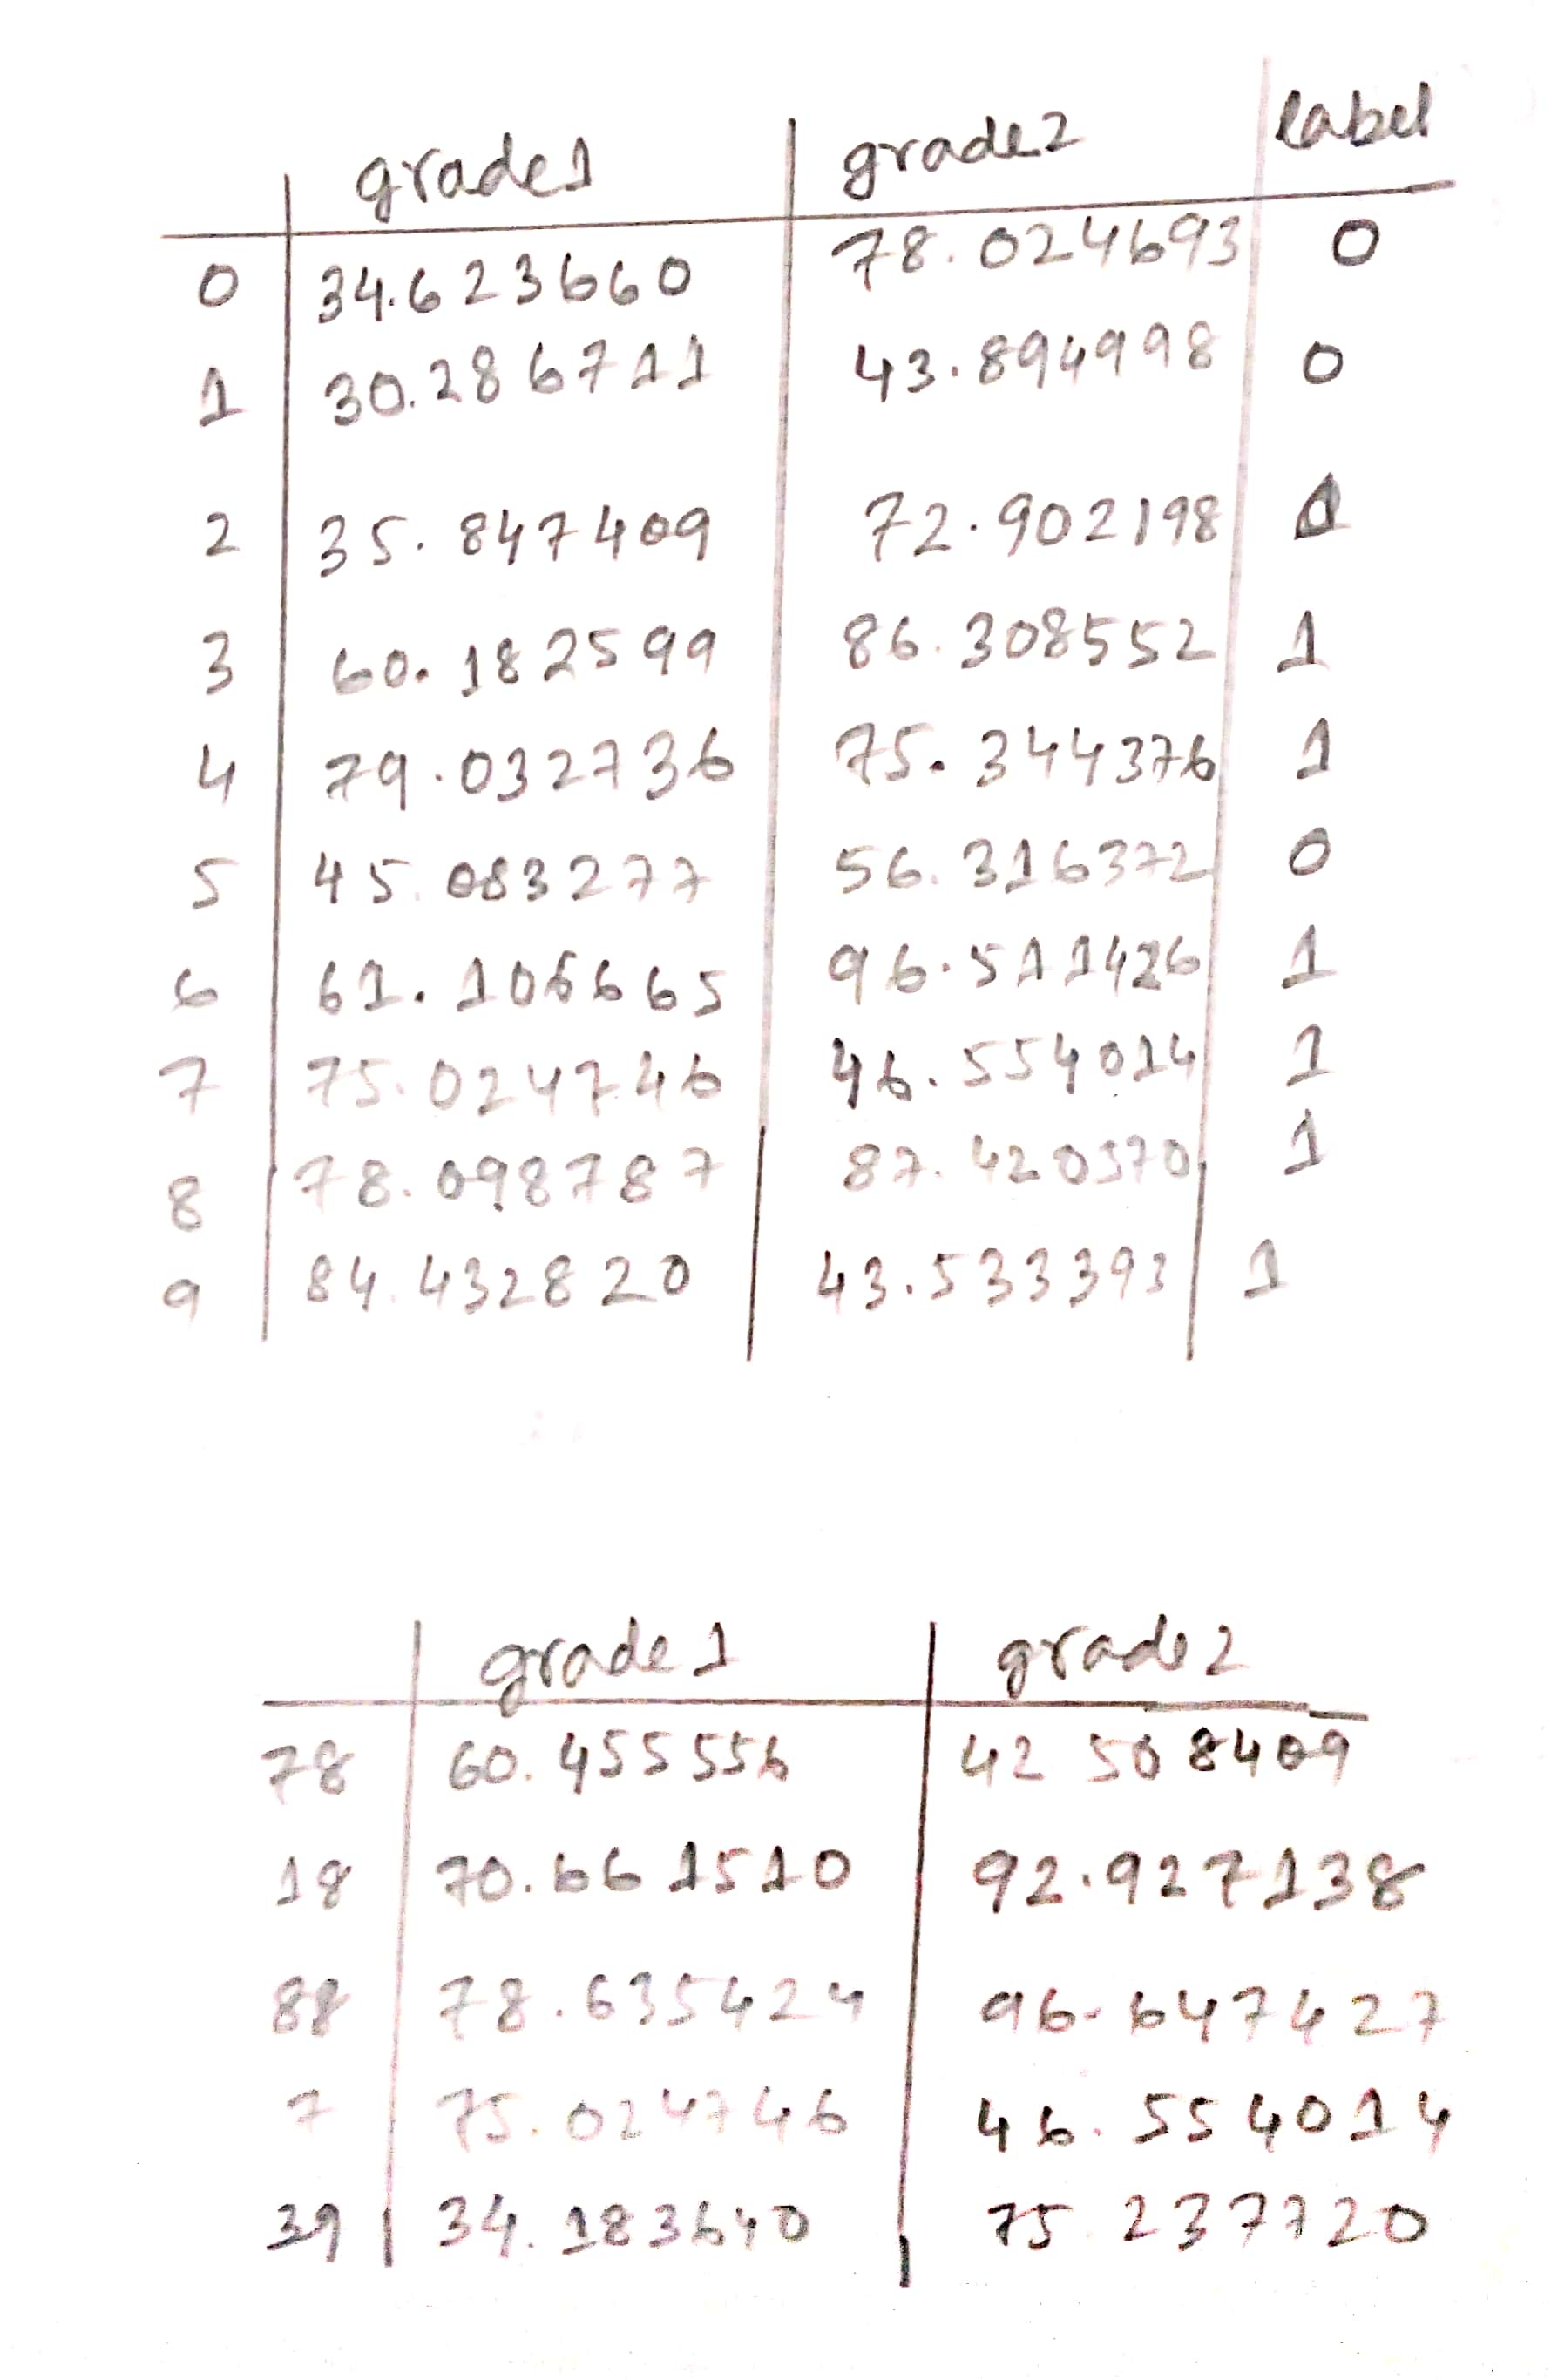 grade1 grade2 label
0 34.623660 78.024693 0
1 30.286711 43.894998 0
2 35.847409 72.902198
3 60.182599 86.308552 1
4 79.032736 75.344376 1
5 45.083277 56.316372 0
6 61.106665 96.511426 1
7 75.024746 46.554014 1
8 78.098787 87.420570 1
9 84.432820 43.533393 1
grade1 grade2
78 60.455556 42 508409
18 70.661510 92.927138
88 78.635424 96.647427
7 75.024746 46.554014
39 34.183640 75.237720